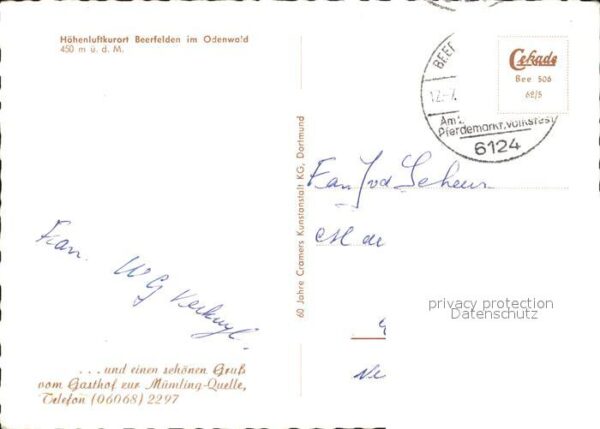 Höhenluftkurort Beerfelden im Odenwald
450 m ü. d. M.
Cekade
Bee 506
62/5
BEER
12.-7.
Am 2.
Pferdemarkt, Volksfest
6124
60 Jahre Cramers Kunstanstalt KG, Dortmund
Fam. J vd Scheur
Fam. WG
privacy protection
Datenschutz
. . . und einen schönen Gruß
vom Gasthof zur Mümling-Quelle,
Telefon (06068) 2297